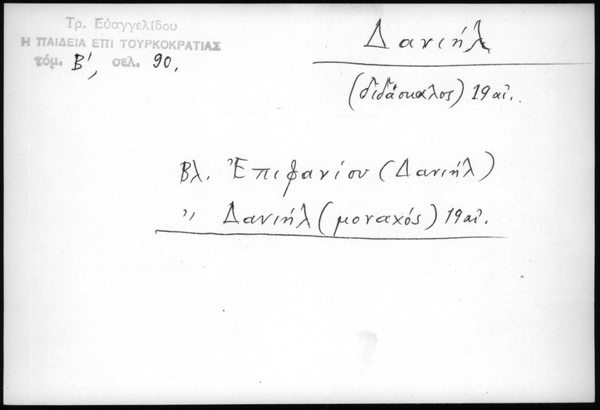 Τρ. Εὐαγγελίδου
Η ΠΑΙΔΕΙΑ ΕΠΙ ΤΟΥΡΚΟΚΡΑΤΙΑΣ
τόμ. Β', σελ. 90.
Δανιήλ
(διδάσκαλος) 19 αἰ.
Βλ. Ἐπιφανίου (Δανιήλ)
" Δανιήλ (μοναχός) 19 αἰ.